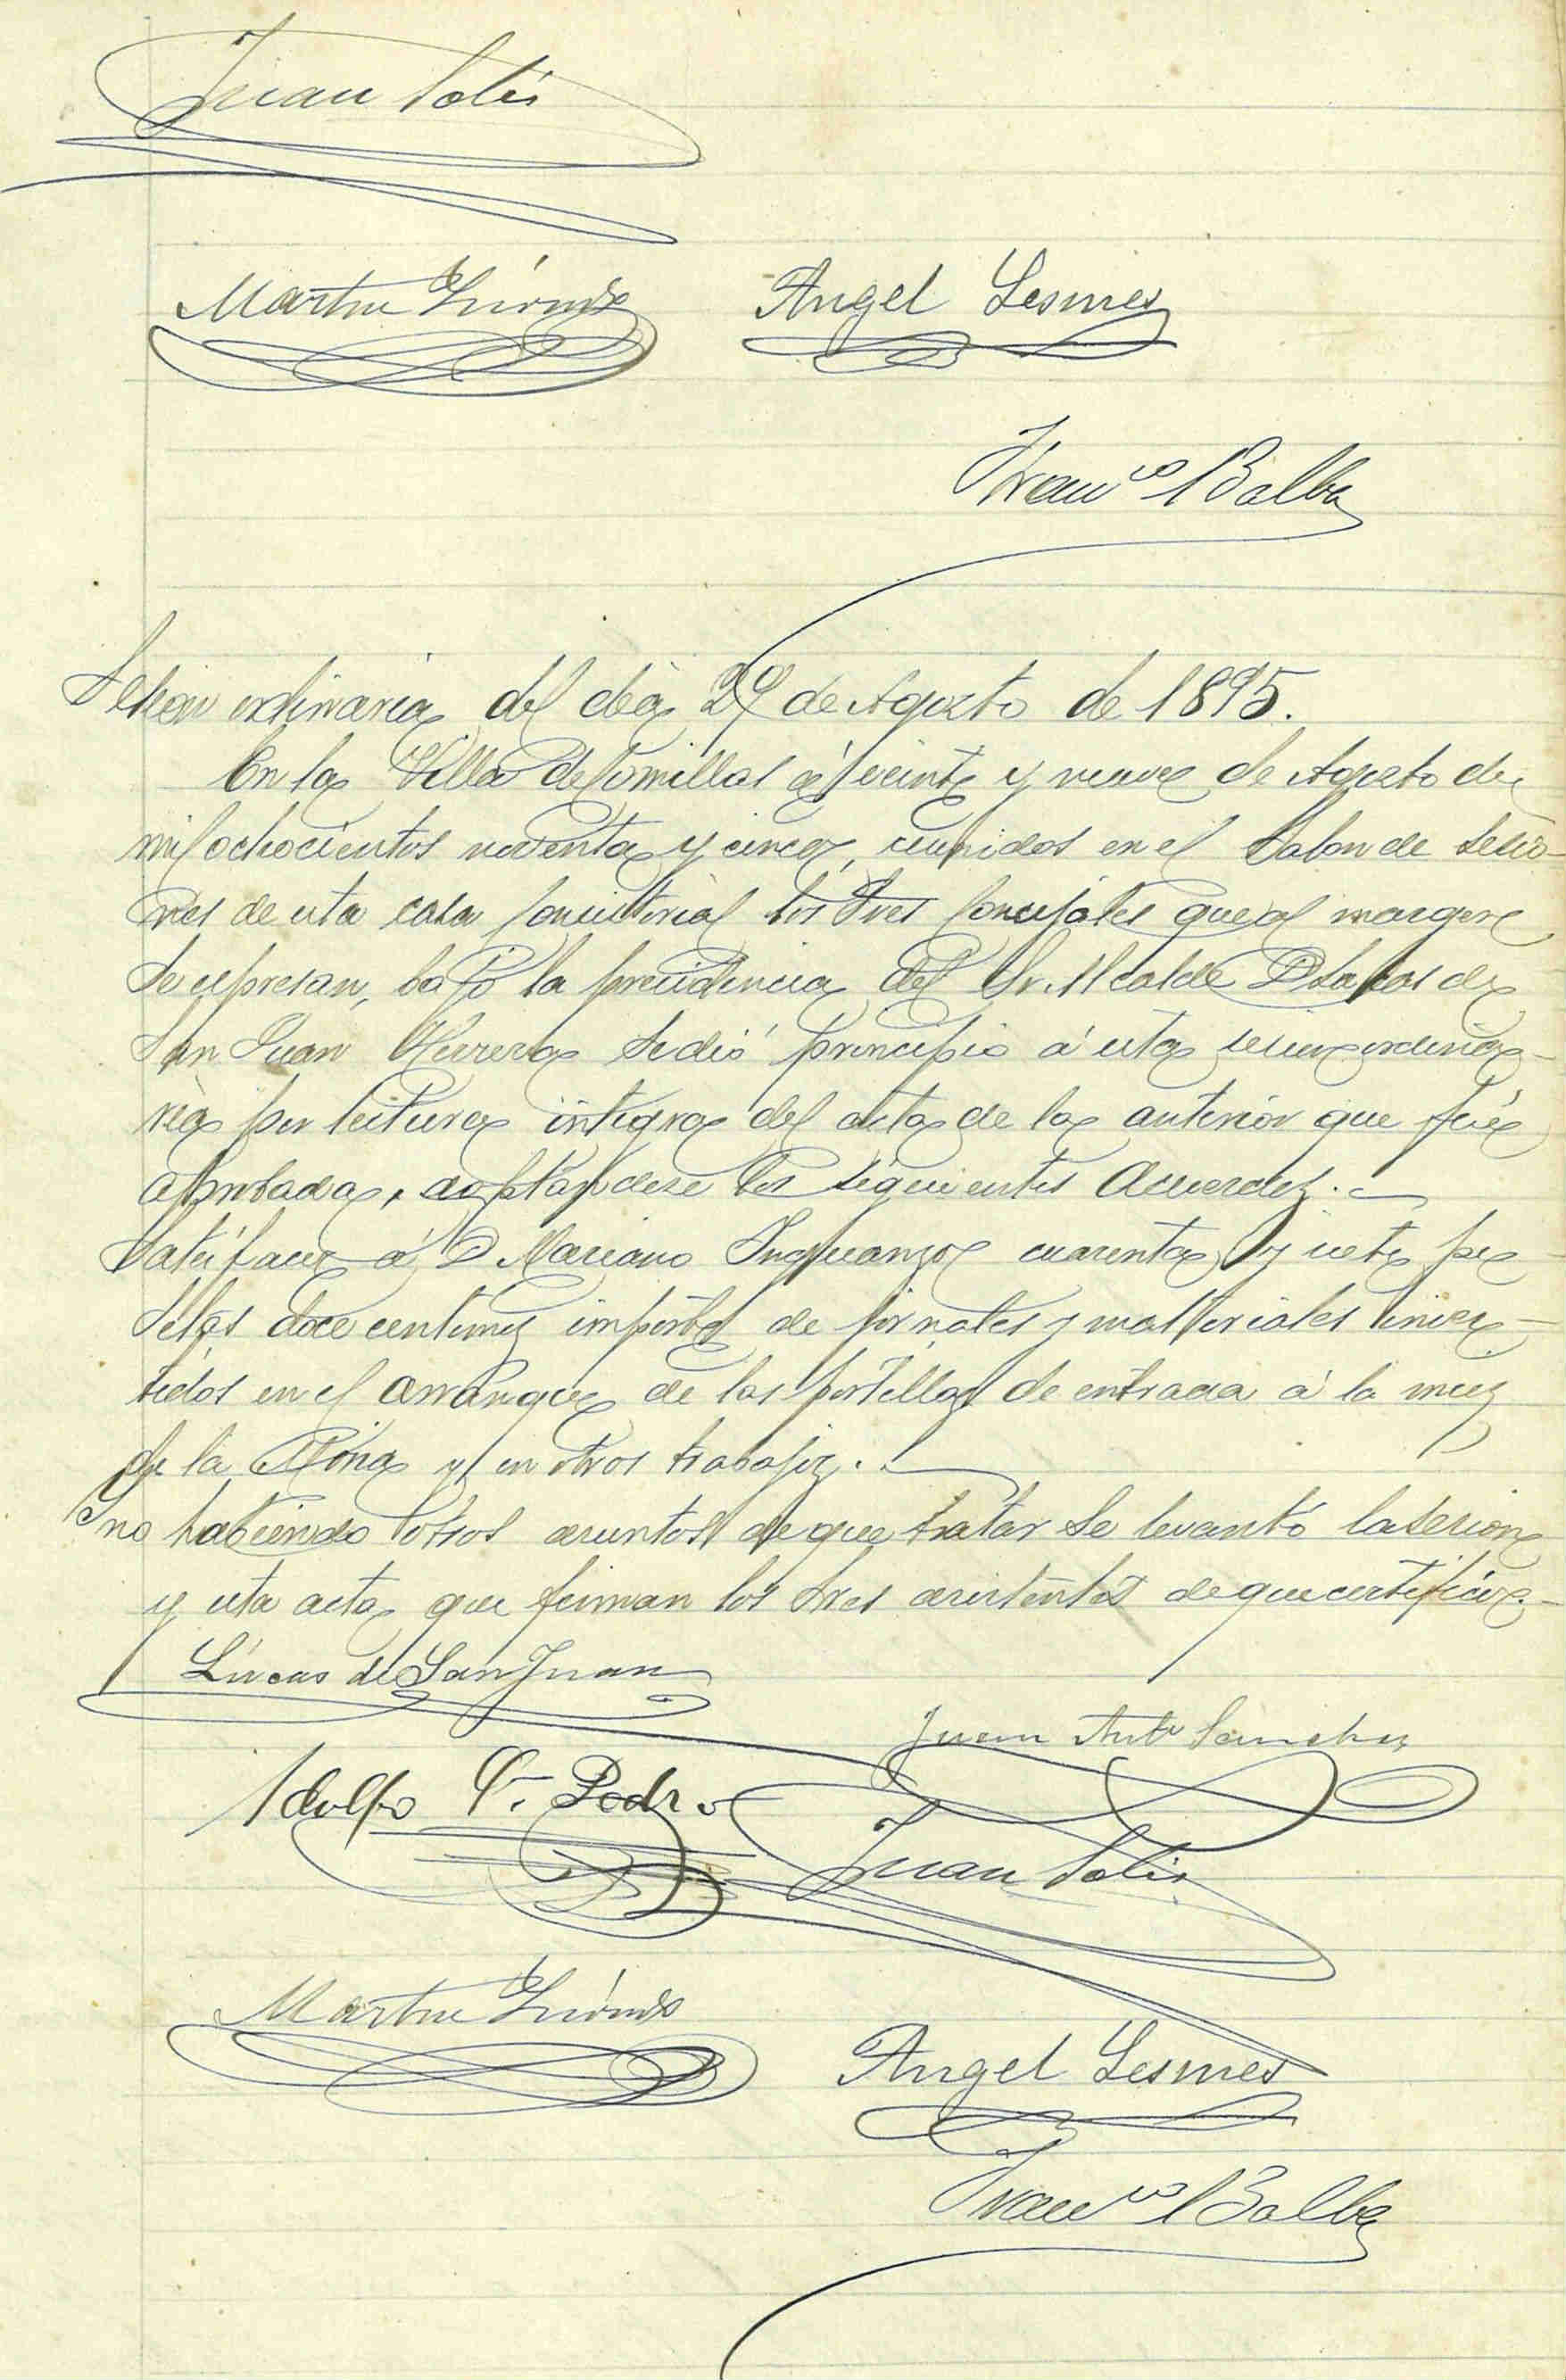 Juan Solis
Martin
Angel Lesmes
Franco Balba
Sesion ordinaria del dia 29 de Agosto de 1895.
En la Villa de Comillas á veinte y nueve de Agosto de
mil ochocientos noventa y cinco, reunidos en el Salon de Sesio-
nes de esta casa Consistorial los Sres Concejales que al margen
se espresan, bajo la presidencia del Sr. Alcalde D Lucas de
San Juan Herrera se dió principio á esta sesion ordina-
ria por lectura integra del acta de la anterior que fué
aprobada, adoptandose los siguientes acuerdos.
Satisfacer á D Mariano Inguanzo cuarenta y siete pe
setas doce centimos importe de jornales y materiales inver-
tidos en el arranque de las portillas de entrada á la mies
de la y en otros trabajos.
Y no habiendo otros asuntos de que tratar se levantó la sesion
y esta acta que firman los Sres asistentes de que certifico.
Lucas de San Juan
Juan Anto Sanchez
Adolfo G. Pedro
Juan Solis
Martin
Angel Lesmes
Franco Balba